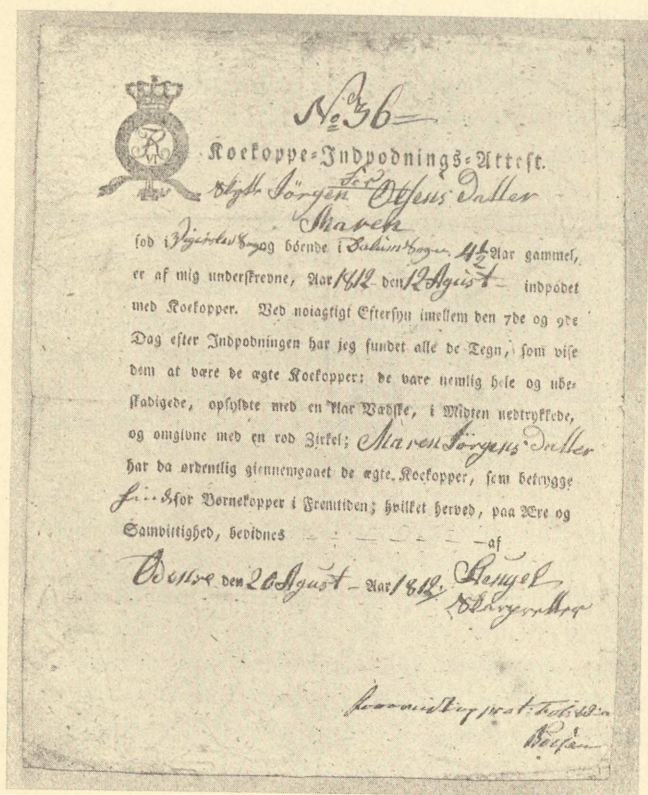 No 36
Koekoppe-Indpodnings-Attest.
For
Jørgen Olsens Datter
Maren
fød i og boende i Sogn 4½ Aar gammel,
er af mig underskrevne, Aar 1812 den 12 Agust indpodet
med Koekopper. Ved noiagtigt Eftersyn imellem den 7de og 9de
Dag efter Indpodningen har jeg fundet alle de Tegn, som vise
dem at være de ægte Koekopper: de vare nemlig hele og ube-
skadigede, opfyldte med en klar Vædske, i Midten nedtrykkede,
og omgivne med en rød Zirkel; Maren Jørgens Datter
har da ordentlig giennemgaaet de ægte Koekopper, som betrygge
hende for Børnekopper i Fremtiden; hvilket herved, paa Ære og
Samvittighed, bevidnes — — — — — af
Odense den 20 Agust – Aar 1812. Stengel
Skarpretter